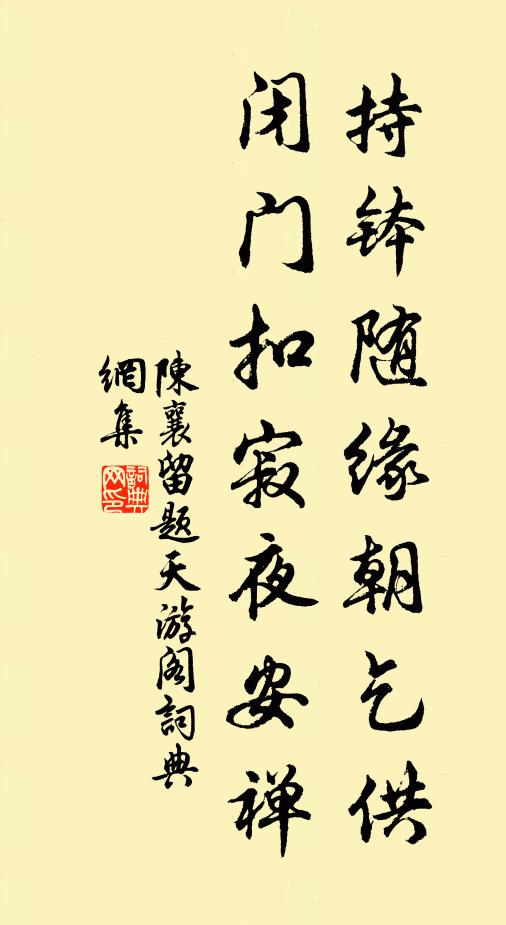 持钵随缘朝乞供
闭门扣寂夜安禅
陳襄留题天游阁詞典
網集
詞典
网印